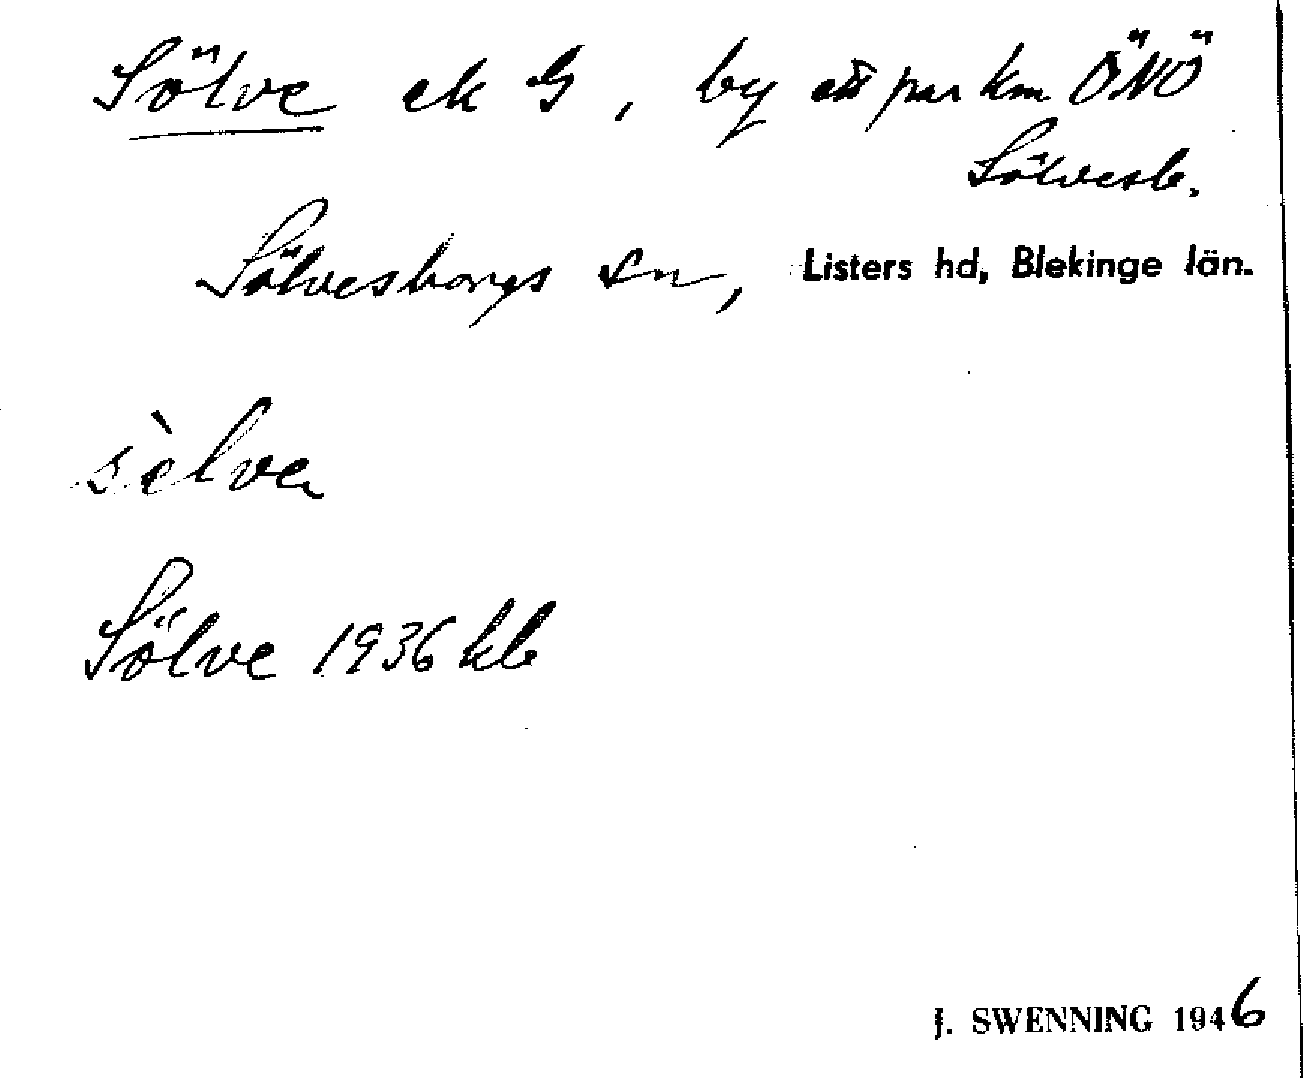 Sölve ek G, by ett par km ÖNÖ
Sölvesb.
Sölvesborgs sn, Listers hd, Blekinge län.
sèlva
Sölve 1936 kb
J. SWENNING 1946